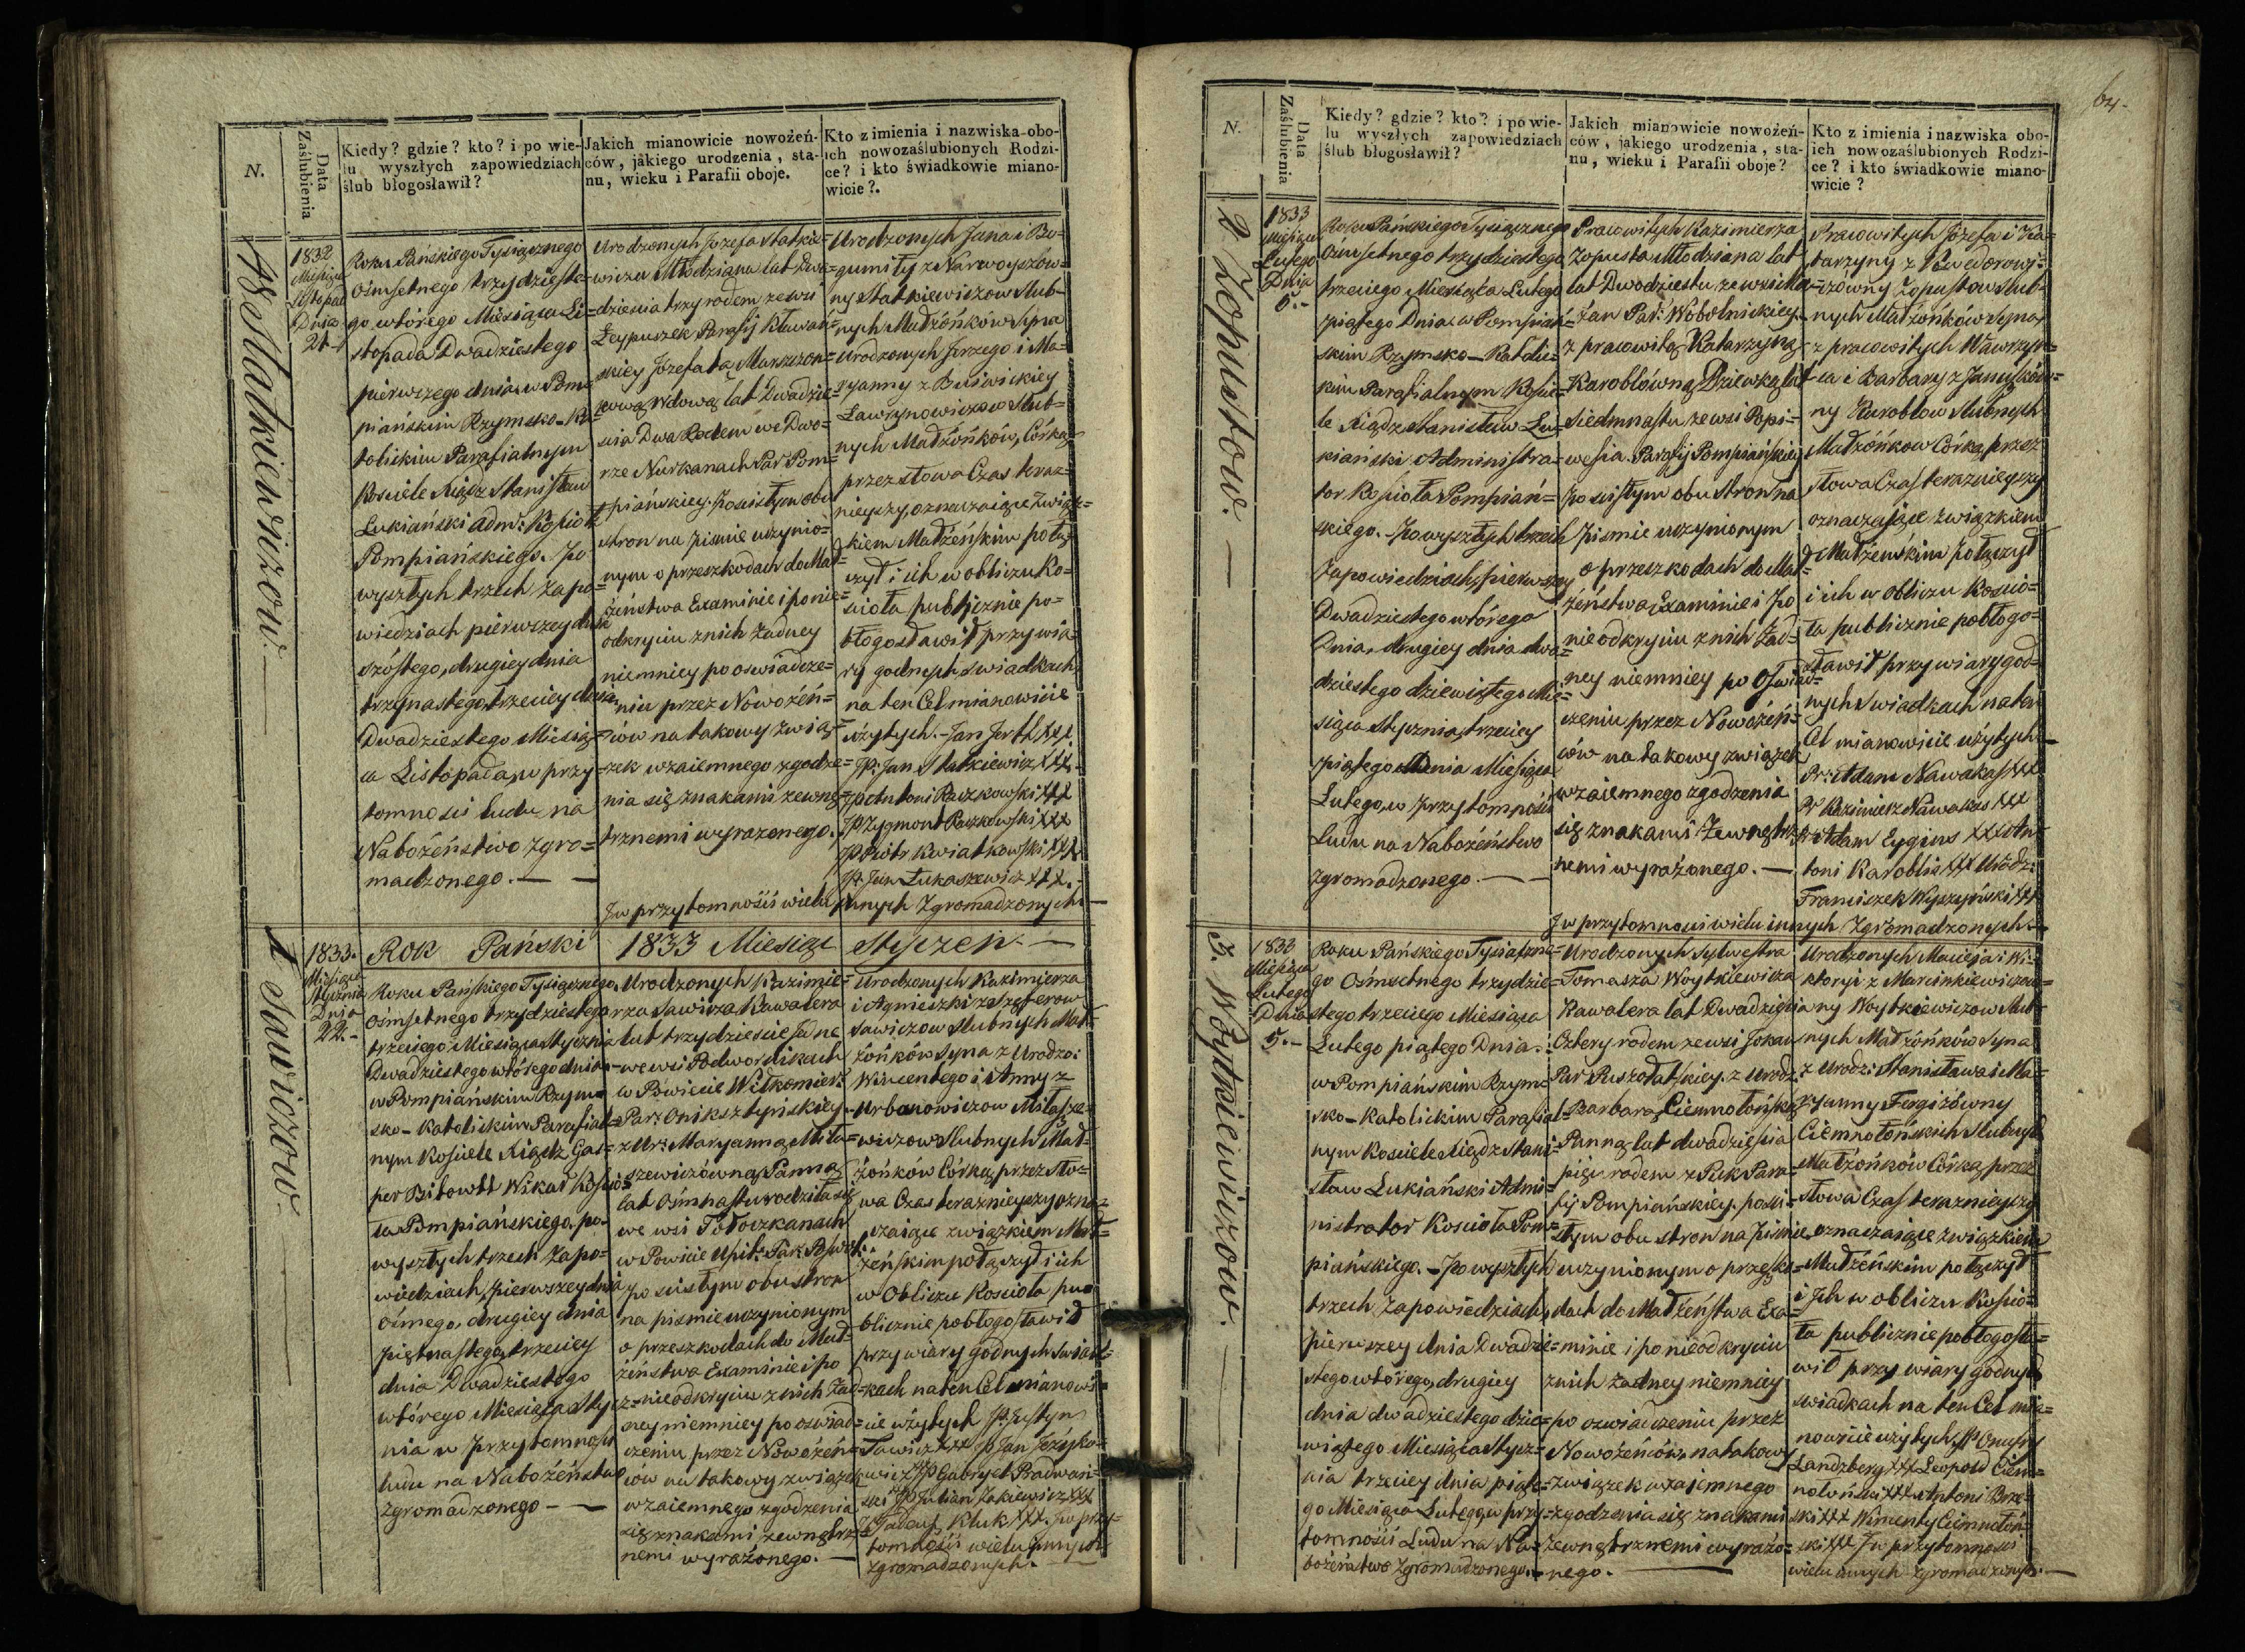 N.
Data Zaślubienia
Kiedy? gdzie? kto? i po wie-
lu wyszłych zapowiedziach
ślub błogosławił?
Jakich mianowicie nowożeń-
ców, jakiego urodzenia, sta-
nu, wieku i Parafii oboje.
Kto z imienia i nazwiska obo-
ich nowozaślubionych Rodzi-
ce? i kto świadkowie miano-
wicie?.
18 Statkiewiczow.
1832
Miesiąca
Listopad
Dnia
21
Roku Pańskiego Tysiącznego
Ośmsetnego trzydzieste-
go wtórego Miesiąca Li-
stopada Dwadziestego
pierwszego dnia, w Pom-
piańskim Rzymsko-Ka-
tolickim Parafialnym
Kościele Xiądz Stanisław
Łukiański adm: Kościoł
Pompiańskiego. Po
wyszłych trzech Zapo=
wiedziach pierwszey dnia
szóstego, drugiey dnia
trzynastego, trzeciey dnia
Dwadziestego Miesią-
ca Listopada, w przy-
tomnosci ludu na
Nabożeństwo zgro=
madzonego.
Urodzonych Jozefa Statkie=
wicza Młodziana lat Dwa=
dziescia trzy rodem ze wsi
Łeypuszek Parafij Kławań=
skiey Jozefatą Marszzon=
kową Wdową lat Dwadzie=
scia Dwa Rodem we Dwo=
rze Nurkanach Par Pom=
piańskiey. Po scisłym obu
stron na pismie uczynio=
nym o przeszkodach do Mał=
żeństwa Examinie i po nie=
odkryciu z nich żadney
niemniey po oswiadcze=
niu przez Nowożeń=
ców na takowy zwią=
zek wzaiemnego zgodze=
nia się znakami zewnę=
trznemi wyrażonego.
Urodzonych Jana i Bo=
gumiły z Narwoyszów=
ny Statkiewiczow Slub=
nych Małżońków Syna
Urodzonych Jerzego i Ma=
ryanny z Butwickiey
Ławrynowiczow Slub=
nych Małżońków, Córką
przez słowa Czas teraz=
nieyszy, oznaczaiące Związ=
kiem Małżeńskim połą=
czył i ich w obliczu Ko=
scioła publicznie po=
błogosławił przy wia=
ry godnych swiadkach
na ten Cel mianowicie
użytych. Jan XXX
JP: Jan Statkiewicz XXX.
JP Antoni Raczkowski XXX
JP Zygmont Raczkowski XXX
JP Piotr Kwiatkowski XXX
JP. Jan Łukaszewicz XXX.
J w przytomności wielu innych Zgromadzonych.
1833.
Rok Pański 1833 Miesiąc Styczeń.
1 Sawiczow.
Miesiąc
Stycznia
Dnia
22.
Roku Pańskiego Tysiącznego
Ośmsetnego trzydziestego
trzeciego Miesiąca Stycznia
Dwadziestego wtórego dnia
w Pompiańskim Rzym=
sko-Katolickim Parafial=
nym Kościele Xiądz Gas=
per Bitowtt Wikar Kościo=
ła Pompiańskiego. po
wyszłych trzech Zapo=
wiedziach, pierwszey dnia
ósmego, drugiey dnia
piętnastego, trzeciey
dnia Dwadziestego
wtórego Miesiąca Stycz=
nia w przytomnosci
ludu na Nabożeństwo
zgromadzonego.
Urodzonych Kazimie=
rza Sawicza Kawalera
lat trzydziescie Jedne
we wsi Podwornikach
w Powiecie Wiłkomierz
Par: Onikrsztyńskiey
z Ur: Maryanną Miła=
szewiczówną Panną
lat Ośmnastu rodziła się
we wsi Tołoczkanach
w Powicie Upit: Par Poswol:
po scisłym obu stron
na pismie uczynionym
o przeszkodach do Mał=
żeństwa Examinie i po
nieodkryciu z nich żad=
ney niemniey po oswiad=
czeniu przez Nowożeń=
ców na takowy związek
wzaiemnego zgodzenia
się znakami zewnętrz=
nemi wyrażonego.
Urodzonych Kazimierza
i Agnieszki z Szasterow
Sawiczow Slubnych Mał=
żońków Syna z Urodzo:
Wincentego i Anny z
Urbanowiczow Miłasze=
wiczow Slubnych Mał=
żońków Córką, przez sło=
wa Czas teraznieyszy ozna=
czaiące związkiem Mał=
żeńskim połączył i ich
w Obliczu Kościoła pu=
blicznie pobłogosławił
przy wiary godnych Swiad=
kach na ten Cel mianowi=
cie użytych JP. Justyn
Sawicz XXX JP Jan
JP Gabryel Pradwań=
ski JP Julian Jakiewicz XXX
Tadeusz Kluk XXX. J w przy=
tomności wielu innych
Zgromadzonych.
64.
N.
Data Zaślubienia
Kiedy? gdzie? kto? i po wie-
lu wyszłych zapowiedziach
ślub błogosławił?
Jakich mianowicie nowożeń-
ców, jakiego urodzenia, sta-
nu, wieku i Parafii oboje?
Kto z imienia i nazwiska obo-
ich nowozaślubionych Rodzi-
ce? i kto świadkowie miano-
wicie?
2 Łopustow.
1833
Miesiąca
Lutego
Dnia
5.
Roku Pańskiego Tysiącznego
Ośmsetnego trzydziestego
trzeciego Miesiąca Lutego
piątego Dnia w Pompiań=
skim Rzymsko-Katolic=
kim Parafialnym Koście=
le Xiądz Stanisław Łu=
kiański Administra=
tor Kościoła Pompiań=
skiego. Po wyszłych trzech
Zapowiedziach, pierwszey
Dwadziestego wtórego
Dnia, drugiey dnia dwa=
dziestego dziewiątego Mie=
siąca Stycznia, trzeciey
piątego Dnia Miesiąca
Lutego, w Przytomności
Ludu na Nabożeństwo
zgromadzonego.
Pracowitych Kazimierza
Łopusta Młodziana lat
lat Dwodziestu ze wsi Mo=
żan Par: Wobolnickiey.
z pracowitą Katarzyną
Karoblówną Dziewką lat
Siedmnastu ze wsi Popi=
wesia. Parafij Pompiańskiey
Po scisłym obu stron na
Pismie uczynionym
o przeszkodach do Mał=
żeństwa, Examinie i Po
nieodkryciu z nich żad=
ney niemniey po Oswiad=
czeniu przez Nowożeń=
ców na takowy związek
wzaiemnego zgodzenia
się znakami Zewnętrz=
nemi wyrażonego.
Pracowitych Józefa i Ka=
tarzyny z
Łopustow Slub=
nych Małżońków Syna
z pracowitych Wawrzyń=
ca i Barbary z
ny Karoblow Slubnych
Małżońkow Córką, przez
słowa Czas teraznieyszy
oznaczaiące związkiem
Małżeńskim połączył
i ich w obliczu Koscio=
ła publicznie pobłogo=
sławił przy wiary god=
nych Swiadkach na ten
Cel mianowicie użytych
Pr: Adam Nawakas XXX
Pr Kazimierz Nawakas XXX
Pr Adam Eygins XXX An=
toni Karoblis XXX Urodz:
Franciszek Wyszyński XXX
J w przytomności wielu innych Zgromadzonych.
3. Woytkiewiczow.
1833
Miesiąca
Lutego
Dnia
5.
Roku Pańskiego Tysiączne=
go Ośmsetnego trzydzie=
stego trzeciego Miesiąca
Lutego piątego Dnia.
w Pompiańskim Rzym=
sko-Katolickim Parafial=
nym Kościele Xiądz Stani=
sław Łukiański Admi=
nistrator Koscioła Pom=
piańskiego. Po wyszłych
trzech Zapowiedziach,
pierwszey dnia Dwadzie=
stego wtórego, drugiey
dnia dwadziestego dzie=
wiątego Miesiąca Stycz=
nia trzeciey dnia piąte=
go Miesiąca Lutego, w przy=
tomności Ludu na Na=
bożeństwo zgromadzonego.
Urodzonych Sylwestra
Tomasza Woytkiewicza
Kawalera lat Dwadziescia
Cztery rodem ze wsi Jokan
Par Puszołatskiey. z Urodz:
Barbarą Ciemnołońską
Panną lat dwadziescia
pięć rodem z Puk Para=
fij Pompiańskiey. po sci=
słym obu stron na pismie
uczynionym o przeszko=
dach do Małżeństwa Exa=
minie i po nieodkryciu
z nich żadney niemniey
po oswiadczeniu przez
Nowożeńców na takowy
związek wzaiemnego
zgodzenia się znakami
zewnętrznemi wyrażo=
nego.
Urodzonych Macieja i Wi=
ktoryi z Marcinkiewiczow=
ny Woytkiewiczow Slub=
nych Małżońków Syna
z Urodz: Stanisława i Ma=
ryanny Fergizówny
Ciemnołońskich Slubnych
Małżońków Córką, przez
słowa Czas teraznieyszy
oznaczaiące związkiem
Małżeńskim połączył
i Jch w obliczu Koscio=
ła publicznie pobłogosła=
wił przy wiary godnych
swiadkach na ten Cel mia=
nowicie użytych, JP Onufry
Landzberg XXX Leopold Ciem=
nołoński XXX Antoni Brze=
ski XXX Wincenty Ciemnołoń=
ski XXX J w przytomności
wielu innych Zgromadzonych.